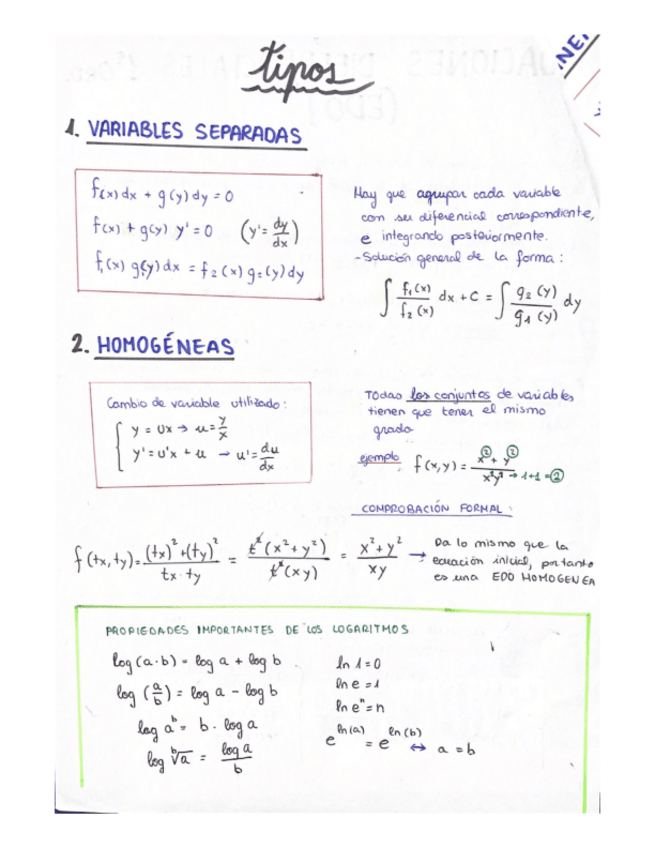 tipos
1. VARIABLES SEPARADAS
f(x) dx + g(y) dy = 0
f(x) + g(y) y' = 0 (y' = dy/dx)
f₁(x) g₁(y) dx = f₂(x) g₂(y) dy
Hay que agrupar cada variable
con su diferencial correspondiente,
e integrando posteriormente.
- Solución general de la forma:
∫ f₁(x)/f₂(x) dx + C = ∫ g₂(y)/g₁(y) dy
2. HOMOGÉNEAS
Cambio de variable utilizado:
y = ux → u = y/x
y' = u'x + u → u' = du/dx
Todos los conjuntos de variables
tienen que tener el mismo
grado
ejemplo f(x,y) = x² + y² / x¹y¹ → 1+1 = 2
COMPROBACIÓN FORMAL:
f(tx,ty) = (tx)² + (ty)² / tx · ty = t²(x² + y²) / t²(xy) = x² + y² / xy →
Da lo mismo que la
ecuación inicial, por tanto
es una EDO HOMOGENEA
PROPIEDADES IMPORTANTES DE LOS LOGARITMOS
log (a · b) = log a + log b
log (a/b) = log a - log b
log aᵇ = b · log a
log ᵇ√a = log a / b
ln 1 = 0
ln e = 1
ln eⁿ = n
e^ln(a) = e^ln(b) ↔ a = b